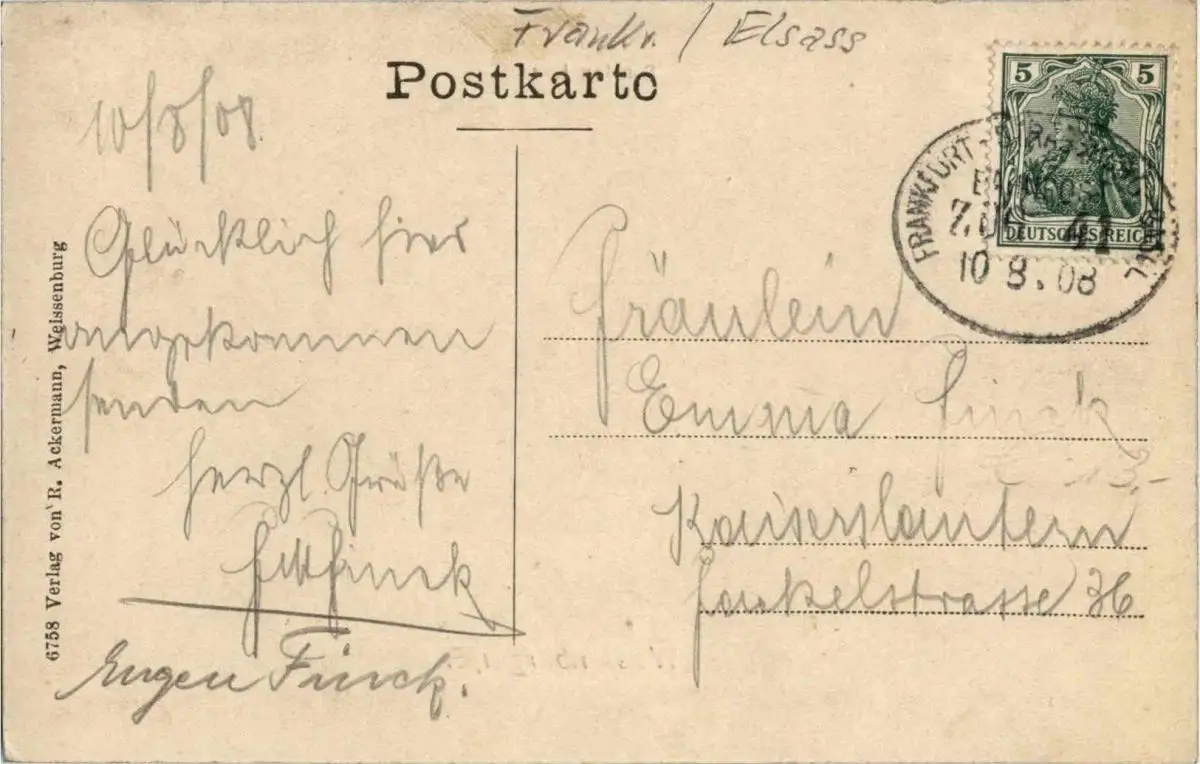 Frankr. / Elsass
Postkarte
10/8/08.
Glücklich hier
angekommen
senden
herzl. Grüße
Finck
Eugen Finck.
6758 Verlag von R. Ackermann, Weissenburg
5 5
DEUTSCHES REICH
FRANKFURT
BASEL
ZUG 41
10 8. 08
Fräulein
Emma Finck
13,-
Kaiserslautern
Fackelstrasse 36